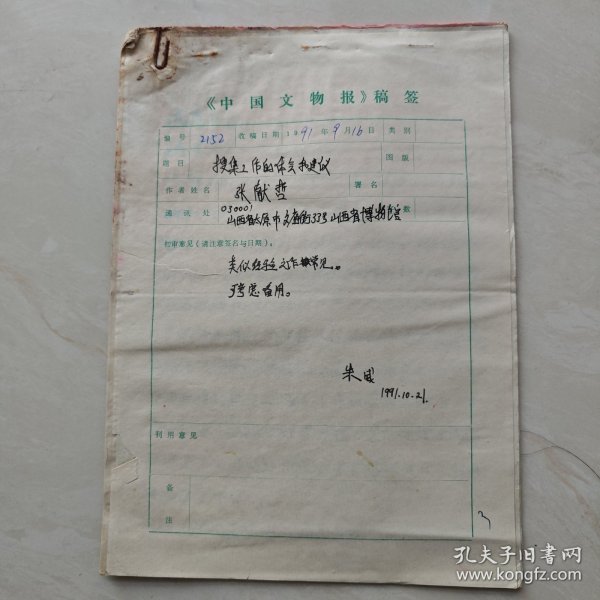 《中国文物报》稿签
编号 2152 收稿日期 1991年9月16日 类别
题目 搜集工作的体会和建议 图版
作者姓名 张献哲 署名
通讯处 030001 数
山西省太原市文庙街33号山西省博物馆
初审意见（请注意签名与日期）。
类似经验文作较常见。
可考虑备用。
朱威
1991.10.21.
刊用意见
备注
3
孔夫子旧书网
www.kongfz.com